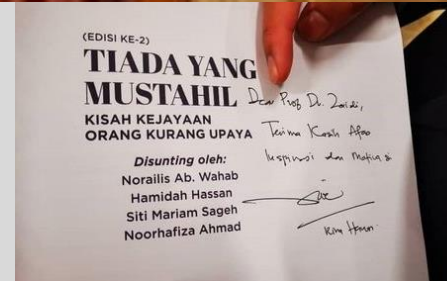 (EDISI KE-2)
TIADA YANG
MUSTAHIL
KISAH KEJAYAAN
ORANG KURANG UPAYA
Disunting oleh:
Norailis Ab. Wahab
Hamidah Hassan
Siti Mariam Sageh
Noorhafiza Ahmad
Dear Prof Dr. Zaidi,
Terima Kasih Atas
Inspirasi dan Motivasi